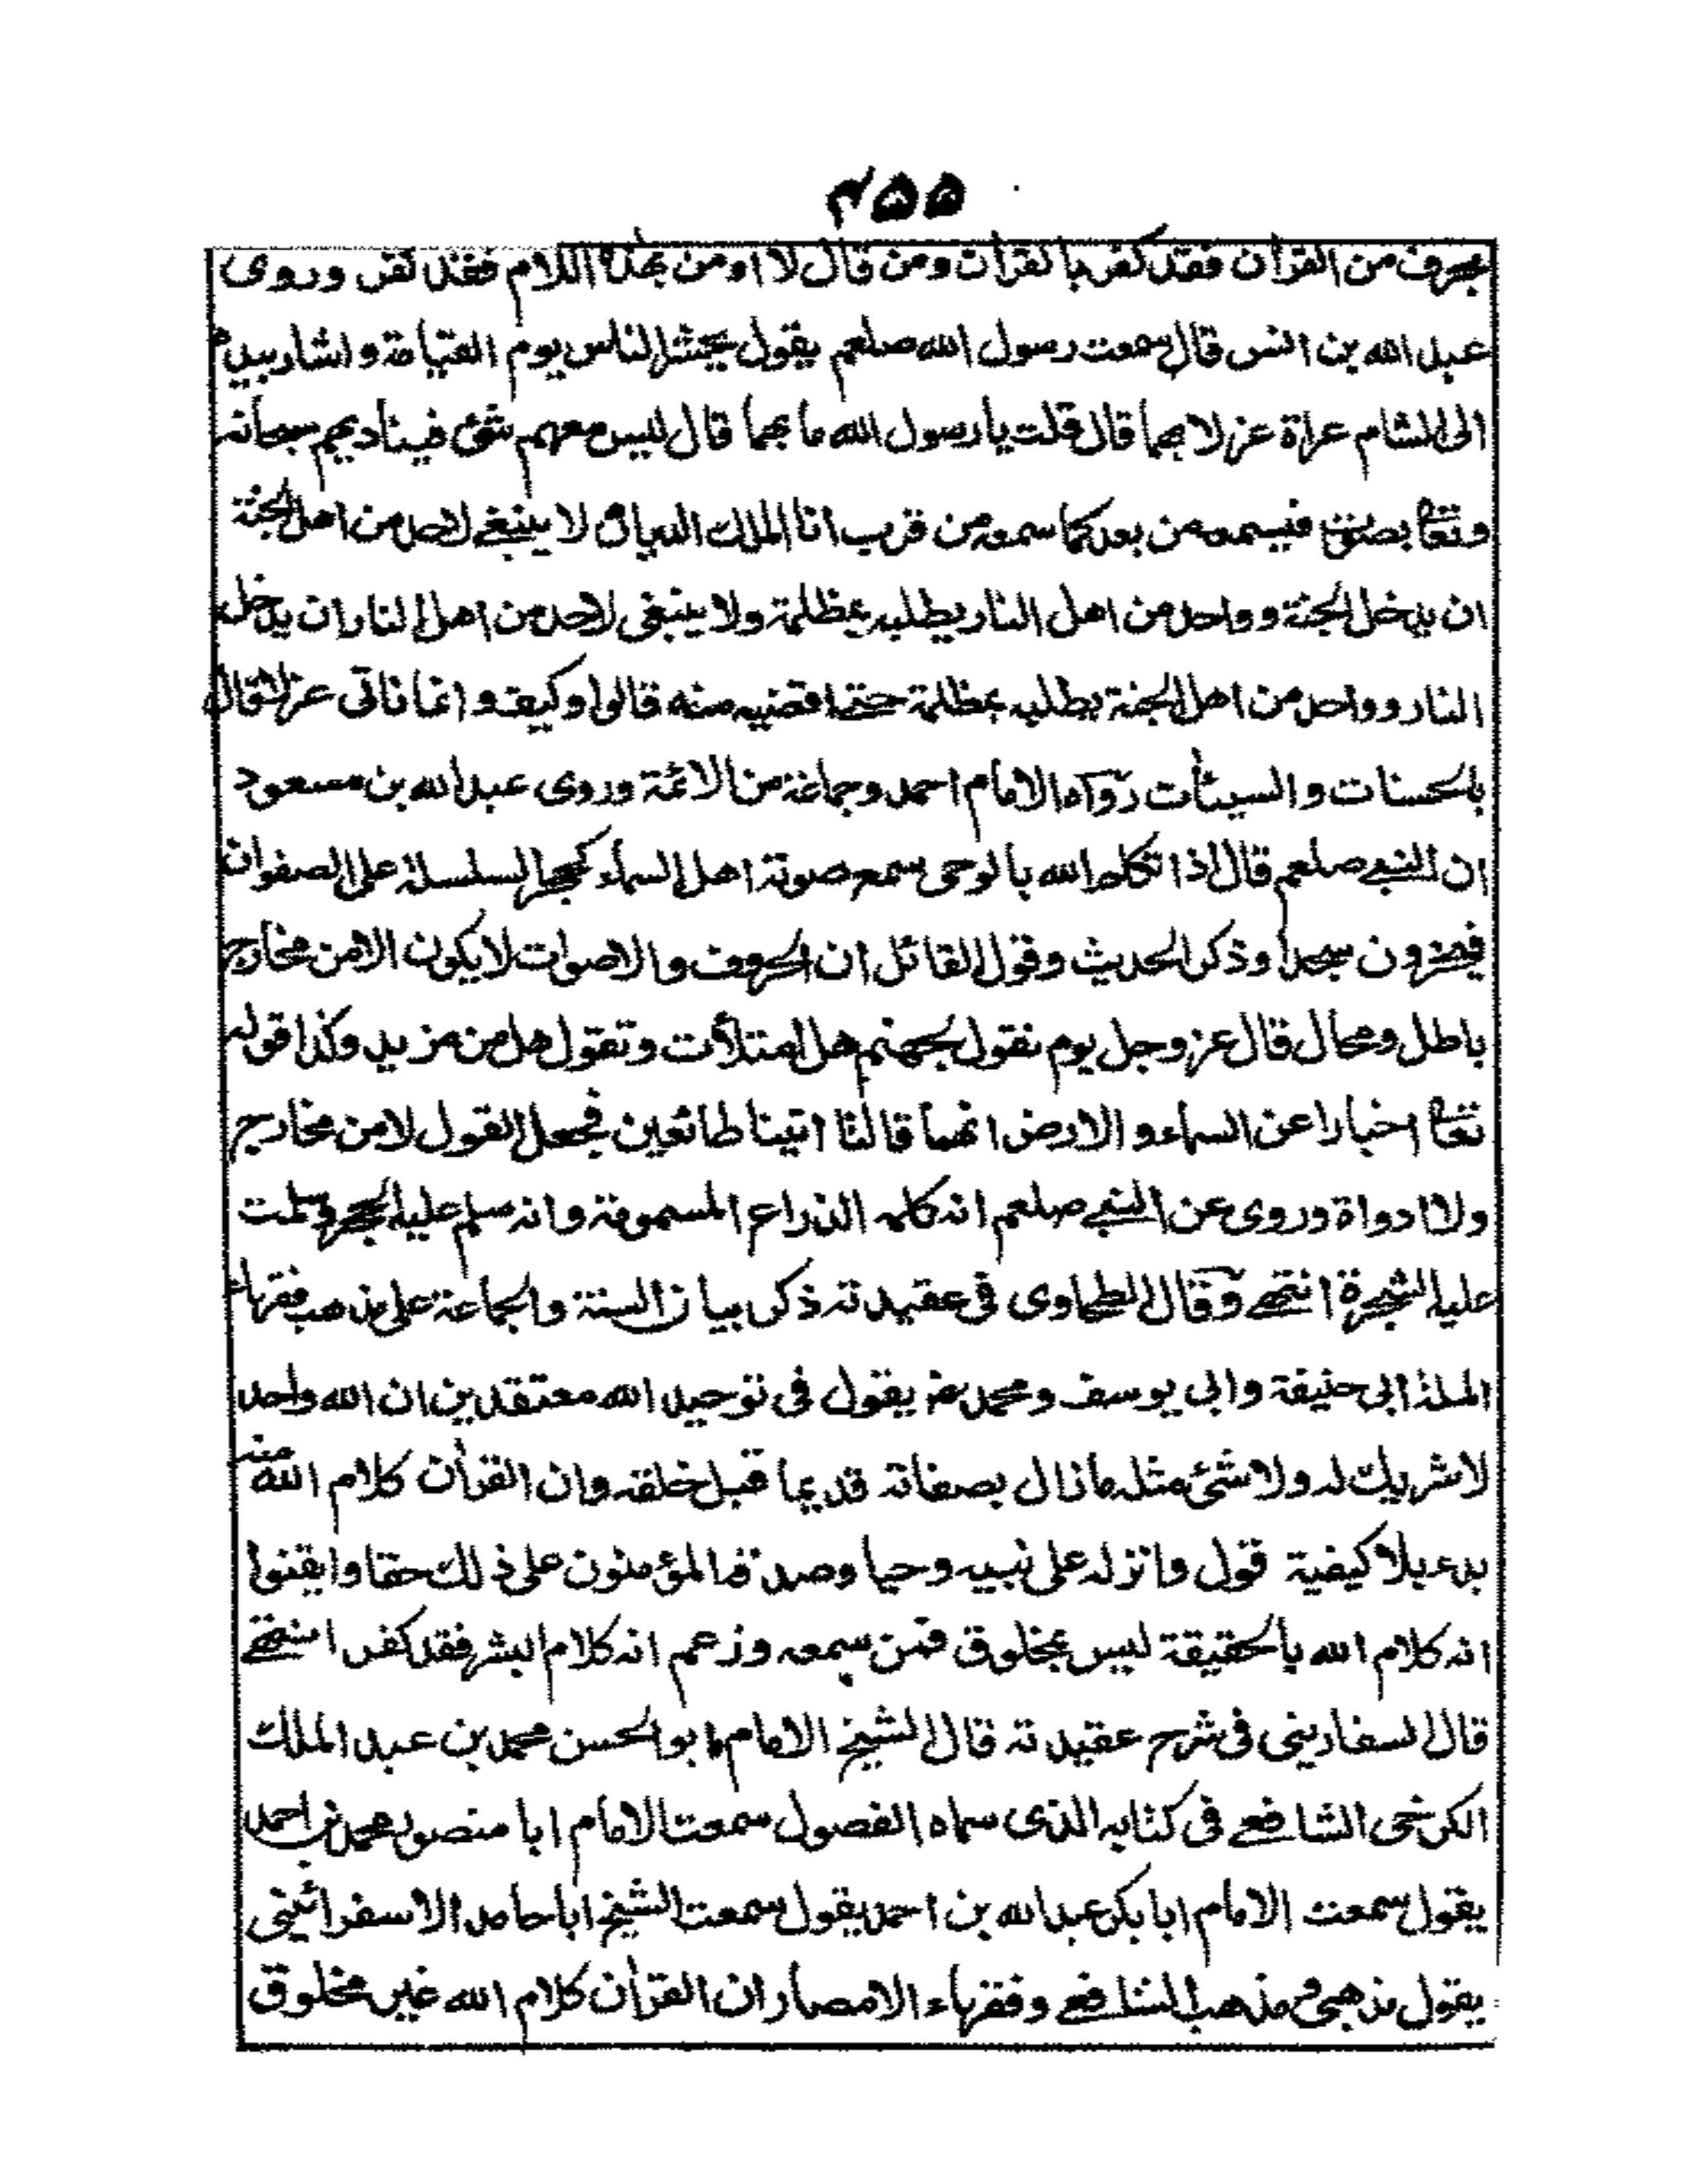 ٤٥٥
بحرف من القرأن فقد كفر بالقرأن ومن قال لا اومن بهذا اللام فقد كفر وروى
عبد الله بن انس قال سمعت رسول الله صلعم يقول يحشر الناس يوم القيامة واشار بيده
الى الشام عراة عزلا بهما قال قلت يا رسول الله ما بهما قال ليس معهم شئ فيناديهم سبحانه
وتعا بصوت فيسمعه من بعد كما سمعه من قرب انا الملك الديان لا ينبغي لاحد من اهل الجنة
ان يدخل الجنة وواحد من اهل النار يطلبه بمظلمة ولا ينبغى لاحد من اهل النار ان يدخل
النار وواحد من اهل الجنة يطلبه بمظلمة حتى اقضيه منه قالوا وكيف وانما ناتى عزلا قال
بالحسنات والسيئات رواه الامام احمد وجماعة من الائمة وروى عبد الله بن مسعود
ان النبي صلعم قال اذا تكلم الله بالوحى سمع صوته اهل السماء كجر السلسلة على الصفوان
فيخرون سجدا وذكر الحديث وقول القائل ان الحروف والاصوات لا يكون الا من مخارج
باطل ومحال قال عز وجل يوم نقول لجهنم هل امتلأت وتقول هل من مزيد وكذا قوله
تعا اخبارا عن السماء والارض انهما قالتا اتينا طائعين فجعل القول لا من مخارج
ولا ادواة وروى عن النبي صلعم انه كلمه الذراع المسمومة وانه سلم عليه الحجر وسلمت
عليه الشجرة انتهى وقال الطحاوى فى عقيدته ذكر بيان السنة والجماعة على مذهب فقهاء
الملة ابى حنيفة وابى يوسف ومحمد رض يقول فى توحيد الله معتقدين ان الله واحد
لا شريك له ولا شئ مثله ما زال بصفاته قديما قبل خلقه وان القرأن كلام الله منه
بدء بلا كيفية قول وانزله على نبيه وحيا وصدقه المؤمنون على ذلك حقا وايقنوا
انه كلام الله بالحقيقة ليس بمخلوق فمن سمعه وزعم انه كلام البشر فقد كفر انتهى
قال السفارينى فى شرح عقيدته قال الشيخ الامام ابو الحسن محمد بن عبد الملك
الكرخى الشافعي فى كتابه الذى سماه الفصول سمعت الامام ابا منصور محمد بن احمد
يقول سمعت الامام ابا بكر عبد الله بن احمد يقول سمعت الشيخ ابا حامد الاسفرائينى
يقول مذهبى ومذهب الشافعي وفقهاء الامصار ان القرأن كلام الله غير مخلوق